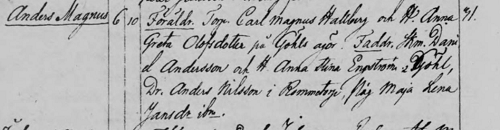 Anders Magnus 6 10 Föräldr. Torp. Carl Magnus Hallberg och H. Anna 31.
Greta Olofsdotter på Göhls ägor. Faddr. Hm. Dani
el Andersson och H. Anna Stina Engström i Göhl,
Dr. Anders Nilsson i Rommetorp, Pig. Maja Lena
Jansdr ibm.